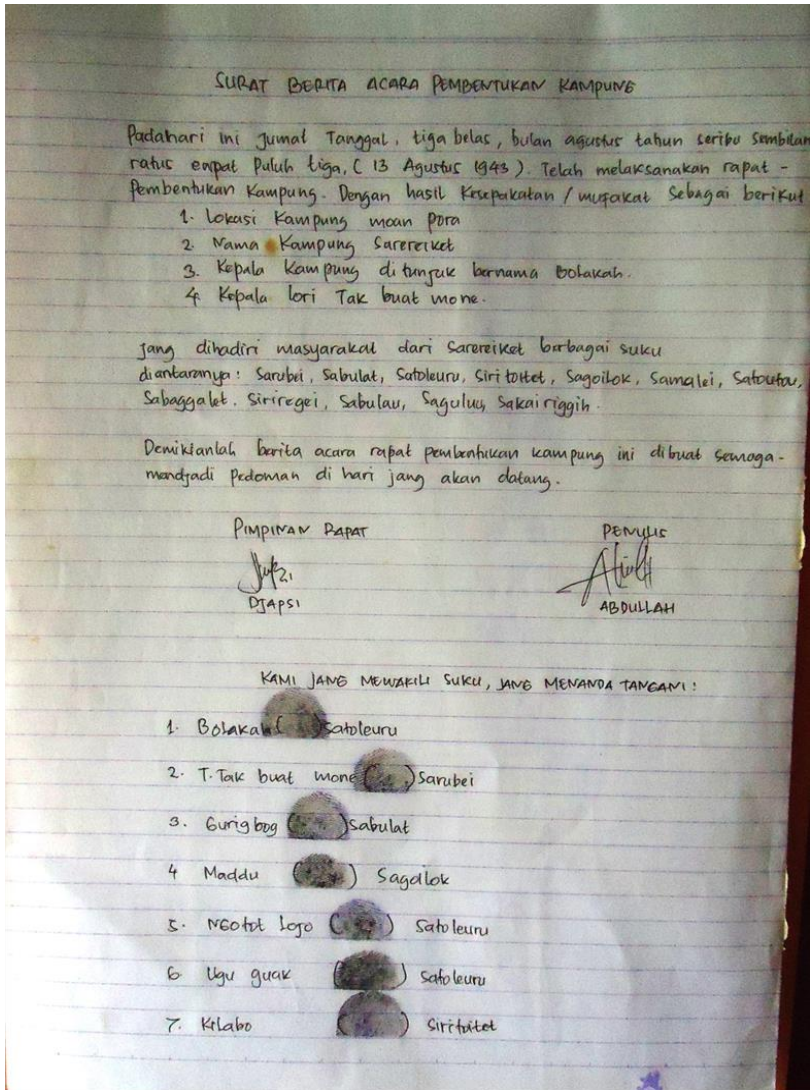 SURAT BERITA ACARA PEMBENTUKAN KAMPUNG
Padahari ini Jumat Tanggal, tiga belas, bulan agustus tahun seribu Sembilan
ratus empat Puluh tiga, ( 13 Agustus 1943 ). Telah melaksanakan rapat -
Pembentukan Kampung. Dengan hasil Kesepakatan / mufakat Sebagai berikut
1. Lokasi Kampung moan pora
2. Nama Kampung Sarereiket
3. Kepala Kampung di tunjuk bernama Bolakah.
4. Kepala lori Tak buat mone.
Jang dihadiri masyarakat dari Sarereiket berbagai suku
diantaranya : Sarubei, Sabulat, Satoleuru, Siritoitet, Sagoilok, Samalei, Satoutou,
Sabaggalet. Siriregei, Sabulau, Saguluw, Sakairiggih.
Demikianlah berita acara rapat pembentukan kampung ini dibuat semoga -
mendjadi Pedoman di hari jang akan datang.
PIMPINAN RAPAT PENULIS
DJAPSI ABDULLAH
KAMI JANG MEWAKILI SUKU, JANG MENANDA TANGANI :
1. Bolakah ( ) Satoleuru
2. T. Tak buat mone ( ) Sarubei
3. Gurigbog ( ) Sabulat
4 Maddu ( ) Sagoilok
5. Ngotot Lojo ( ) Satoleuru
6 Ugu guak ( ) Satoleuru
7. Kilabo ( ) Siritoitet